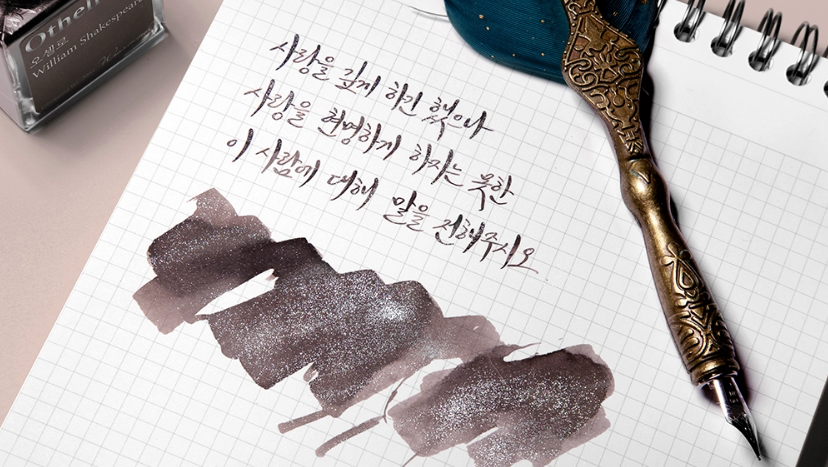 Othell
오셀로
William Shakespear
사랑을 깊게 하긴 했으나
사랑을 현명하게 하지는 못한
이 사람에 대해 말을 전해주시오